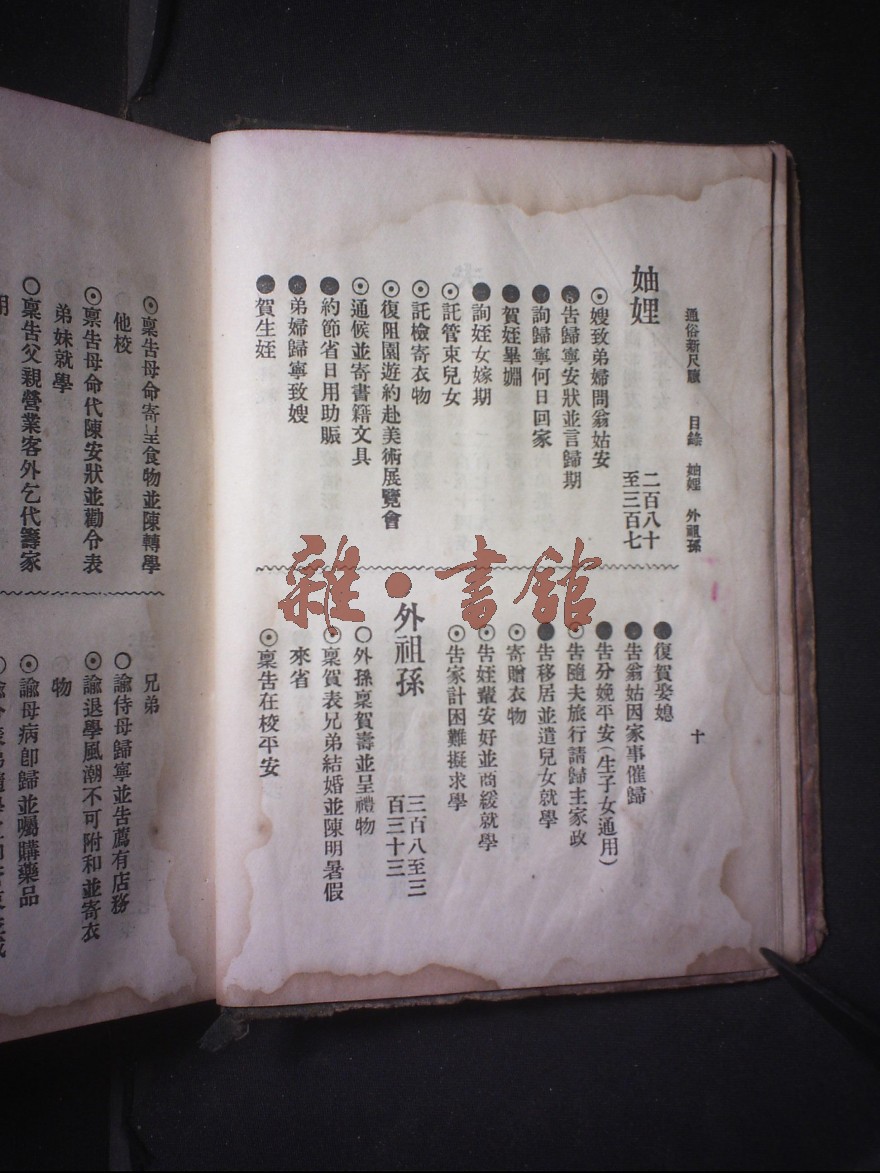 通俗新尺牘 目錄 妯娌 外祖孫 十
妯娌 二百八十至三百七
⦿嫂致弟婦問翁姑安
●告歸寧安狀並言歸期
●詢歸寧何日回家
●賀姪畢婣
●詢姪女嫁期
⦿託管束兒女
⦿託檢寄衣物
⦿復阻園遊約赴美術展覽會
⦿通候並寄書籍文具
●約節省日用助賑
●弟婦歸寧致嫂
●賀生姪
●復賀娶媳
●告翁姑因家事催歸
●告分娩平安(生子女通用)
⦿告隨夫旅行請歸主家政
●告移居並遣兒女就學
⦿寄贈衣物
⦿告姪輩安好並商緩就學
⦿告家計困難擬求學
外祖孫 三百八至三百三十三
○外孫稟賀壽並呈禮物
⦿稟賀表兄弟結婚並陳明暑假
來省
⦿稟告在校平安
雜·書館
⦿稟告母命寄呈食物並陳轉學
他校
⦿稟告母命代陳安狀並勸令表
弟妹就學
○稟告父親營業客外乞代籌家
用
兄弟
○諭侍母歸寧並告薦有店務
⦿諭退學風潮不可附和並寄衣
物
⦿諭母病卽歸並囑購藥品